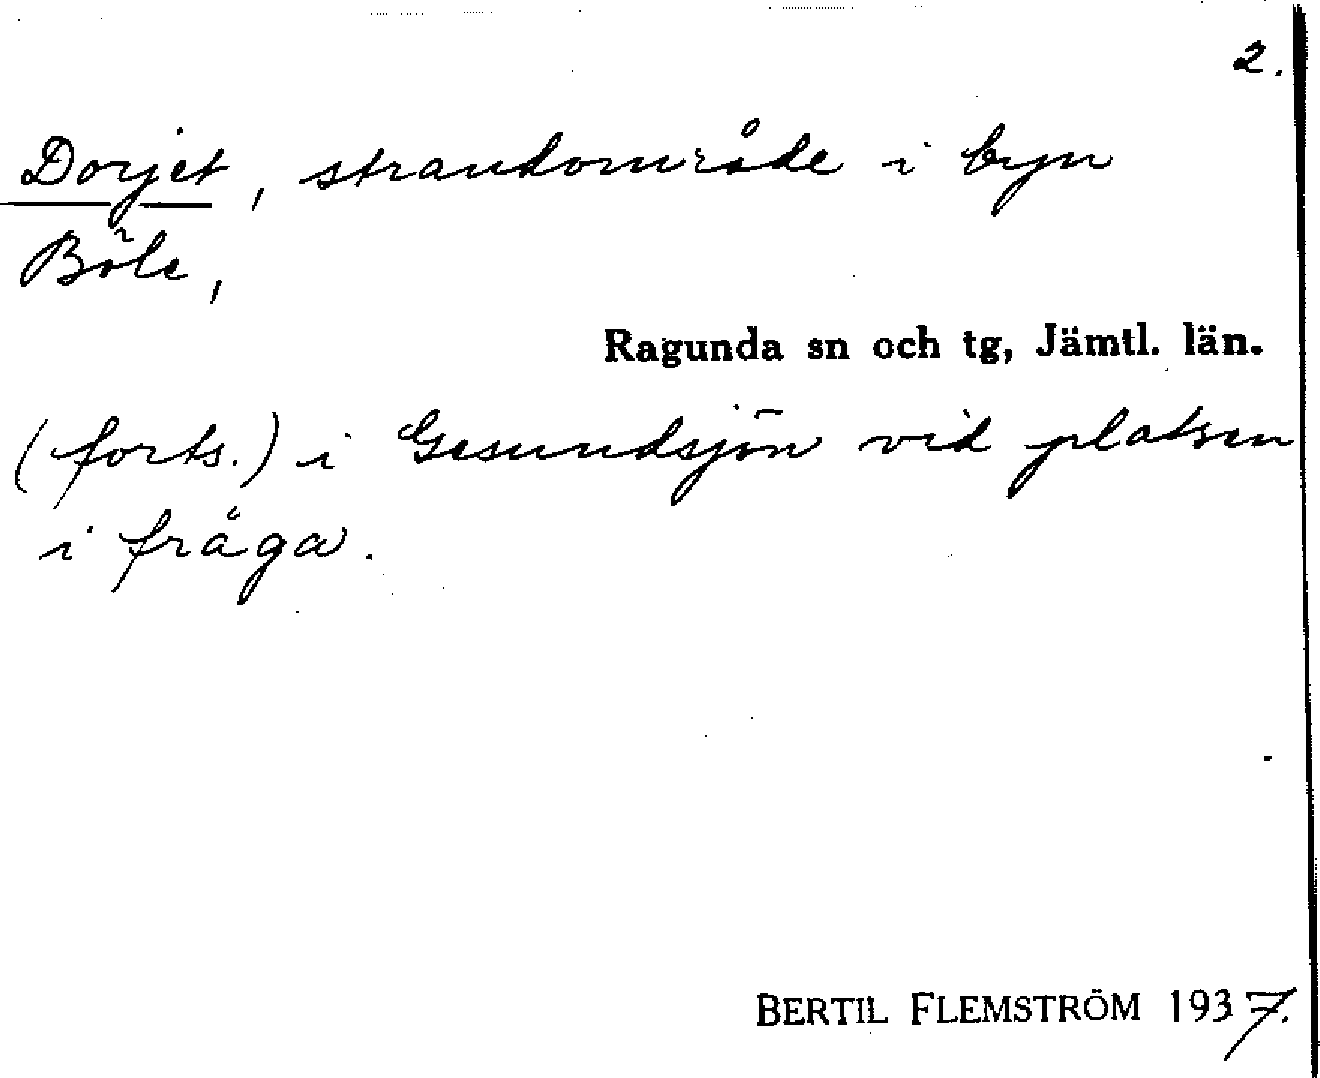 2.
Dorjet, strandområde i byn
Böle,
Ragunda sn och tg, Jämtl. län.
(forts.) i Gesundsjön vid platsen
i fråga.
BERTIL FLEMSTRÖM 1937.